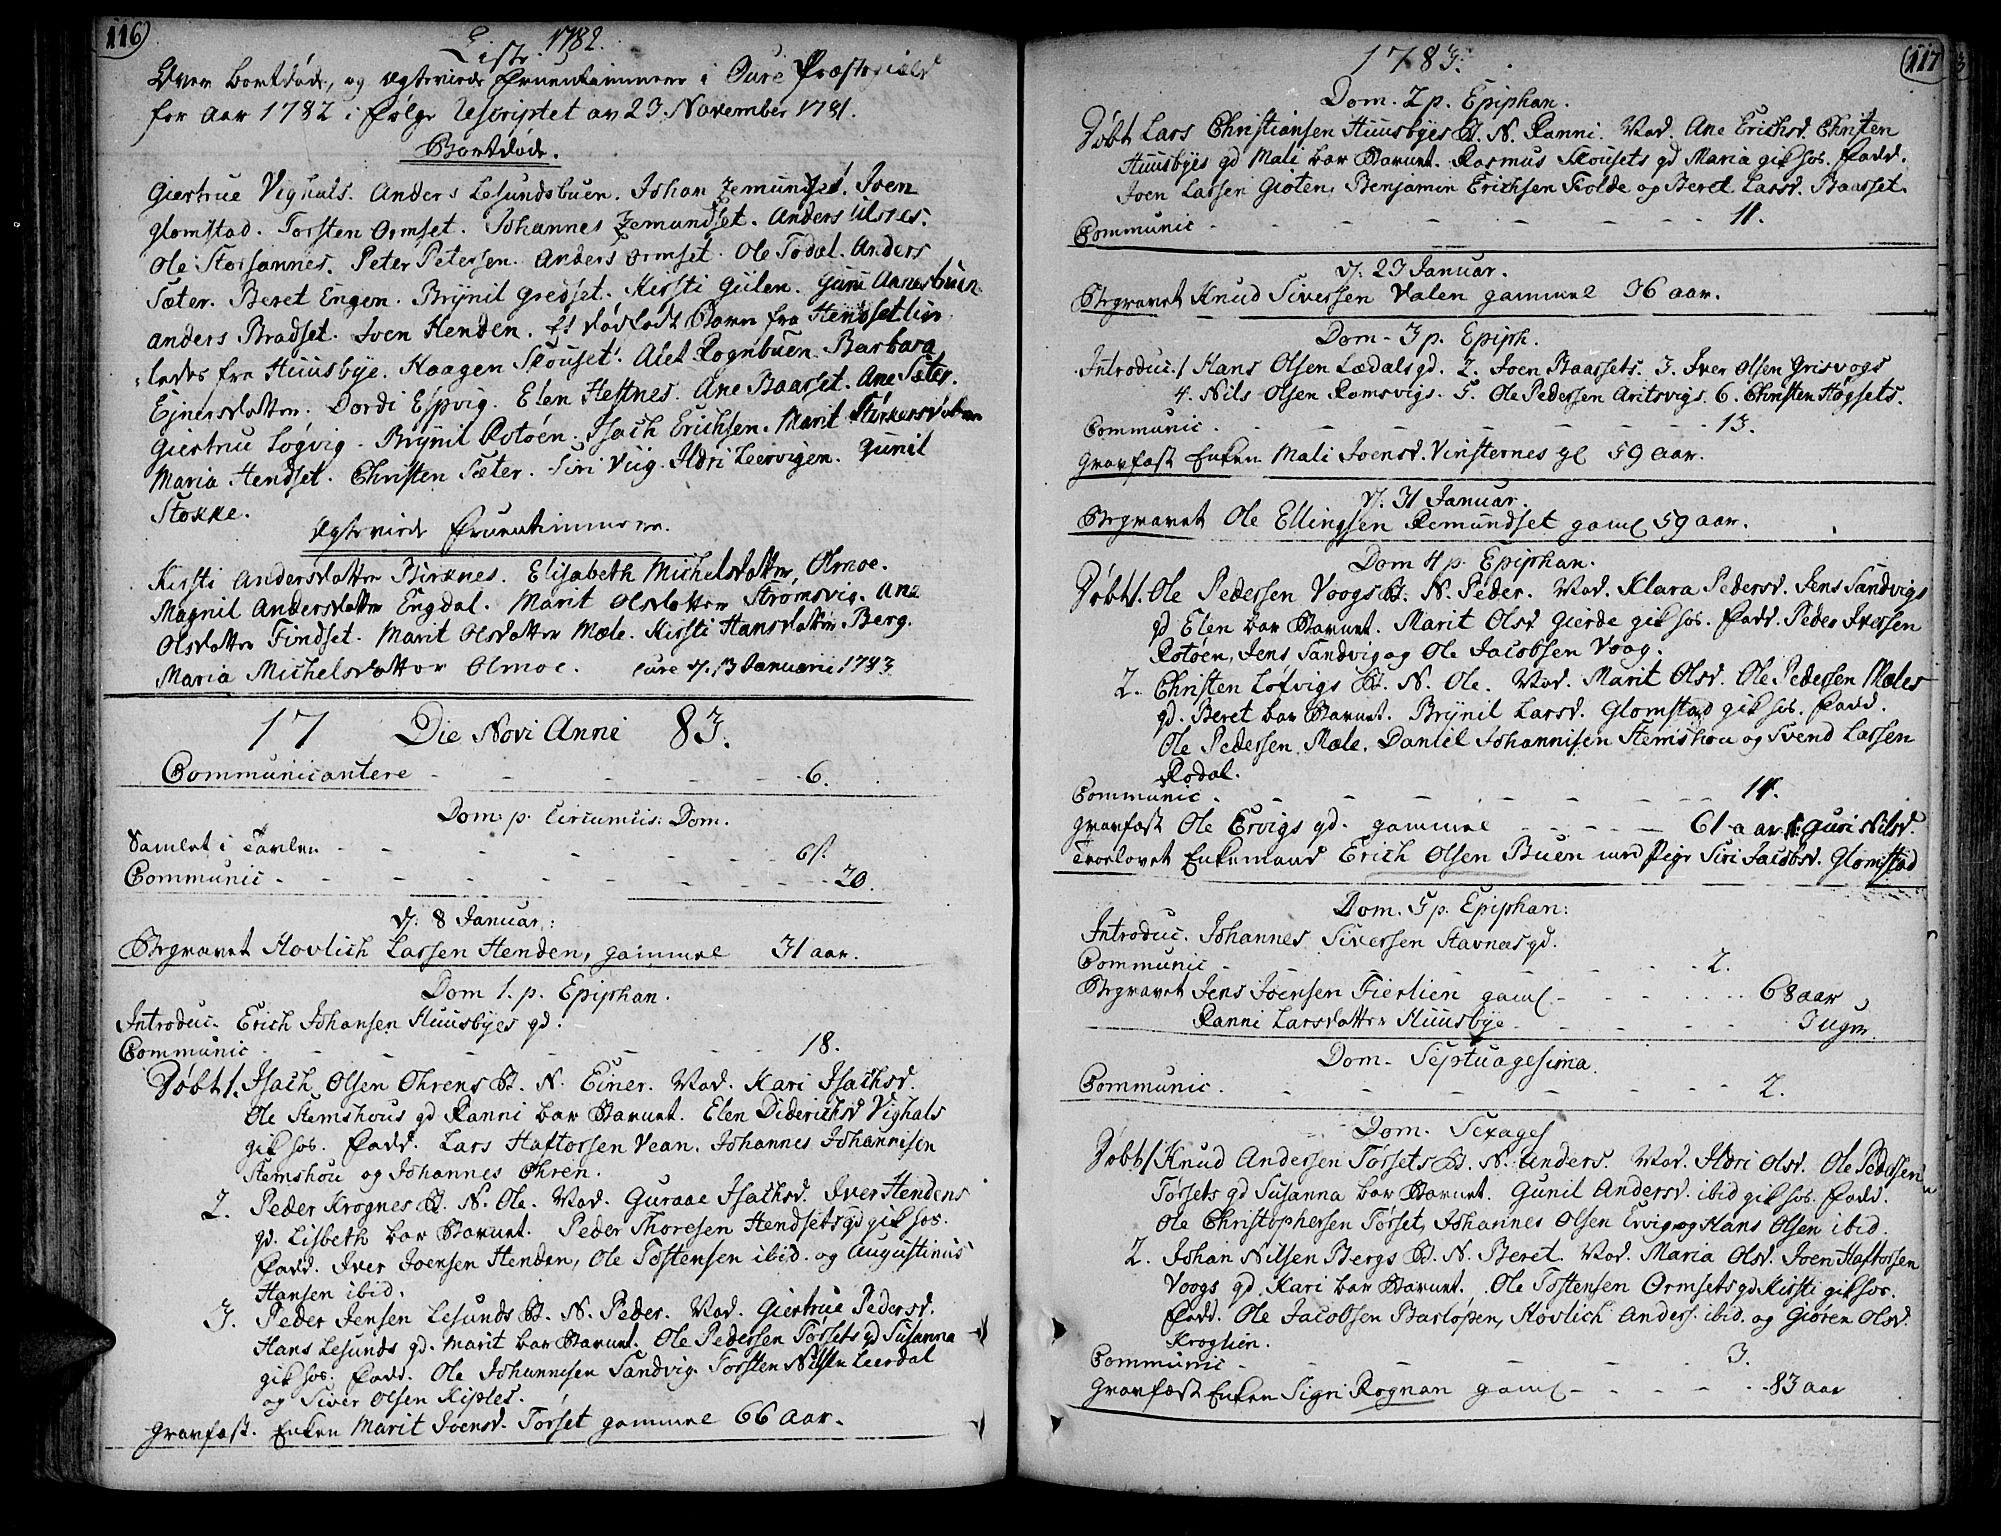 116
1782.
Liste
Over bortdøde, og ægteviede Fruentimmere i Øure Præstegield
for Aar 1782 i følge Rescriptet av 23. November 1781.
Bortdøde.
Giertrue Vighals. Anders Lesundsbuen. Johan Jemundset. Joen
Glomstad. Torsten Ormset. Johannes Jemundset. Anders
Ole Storsannes. Peter Petersen. Anders Ormset. Ole Todal. Anders
Sæter. Beret Engen. Brynil Gredset. Kirsti Gulen. Guru
Anders Bradset. Joen Henden. Et dødfødt Barn fra Hendsetlien
fra Huusbye. Haagen Skouset. Alet Rognbuen. Barbara
Ejnersdatter. Dordi Espvig. Elen Hestnes. Ane Baasset. Ane Sæter.
Giertrue Løgvig. Brynil Rotøen. Isach Erichsen. Marit
Maria Hendset. Christen Sæter. Siri Viig. Ildri Leervigen. Gunil
Stokke.
Ægteviede Fruentimmere.
Kirsti Andersdatter Birknes. Elisabeth Michelsdatter, Olmoe.
Magnil Andersdatter Engdal. Marit Olsdatter Strømsvig. Ane
Olsdatter Findset. Marit Olsdatter Mæle. Kirsti Hansdatter Berg.
Maria Michelsdatter Olmoe. Eure d. 13 Januarii 1783.
17 Die Novi Anni 83.
Communicantere - - - - - 6.
Dom. p. Circumcis: Dom.
Samlet i Tavlen - - - - - - 6 s.
Communic - - - - - - - 20.
d. 8 Januar:
Begravet Hovlich Larsen Henden, gammel 31 aar.
Dom 1. p. Epiphan.
Introduc. Erich Johansen Huusbyes gd.
Communic - - - - - - 18.
Døbt 1. Isach Olsen Ohrens B. N. Einer. Mod. Kari Isachsd.
Ole Stemshous gd Ranni bar Barnet. Elen Diderichsd Vighals
gik hos. Fadd. Lars Haftorsen Vean. Johannes Johannisen
Stemshou og Johannes Ohren.
2. Peder Krognes B. N. Ole. Mod. Guraae Isachsd. Iver Hendens
gd. Lisbeth bar Barnet. Peder Thoresen Hendsets gd gik hos.
Fadd. Iver Joensen Henden, Ole Tostensen ibid. og Augustinus
Hansen ibid.
3. Peder Jensen Lesunds B. N. Peder. Mod. Giertrue Pedersd.
Hans Lesunds gd. Marit bar Barnet. Ole Pedersen Torsets gd Susanna
gik hos. Fadd. Ole Johannisen Sandvig. Torsten Nilsen Leerdal
og Siver Olsen Kiples.
Gravfæst. Enken Marit Joensd. Torset gammel 66 Aar.
117
1783.
Dom. 2 p. Epiphan.
Døbt Lars Christiansen Huusbyes B. N. Ranni. Mod. Ane Erichsd. Christen
Huusbyes gd Mali bar Barnet. Rasmus Skousets gd Maria gik hos. Fadd.
Joen Larsen Giøten, Benjamin Erichsen Folde og Beret Larsd. Baasset.
Communic - - - - - - 11.
d. 23 Januar.
Begravet Knud Siversen Valen gammel 36 aar.
Dom. 3 p. Epiph.
Introduc. 1 Hans Olsen Lædals gd. 2. Joen Baassets. 3. Iver Olsen Grisvogs
4. Nils Olsen Romsvigs. 5. Ole Pedersen Aritsvigs. 6. Christen Høgsets.
Communic. - - - - - - 13.
Gravfæst Enken Mali Joensd. Vinsternes gl 59 aar.
d. 31 Januar.
Begravet Ole Ellingsen Remundset gaml 59 aar.
Dom 4 p. Epiphan.
Døbt 1. Ole Pedersen Voogs B. N. Peder. Mod. Klara Pedersd. Jens Sandvigs
gd Elen bar Barnet. Marit Olsd Gierde gik hos. Fadd. Peder Iversen
Rotøen, Jens Sandvig og Ole Jacobsen Voog.
2. Christen Løfvigs B. N. Ole. Mod. Marit Olsd. Ole Pedersen Mæles
gd. Beret bar Barnet. Brynil Larsd. Glomstad gik hos. Fadd.
Ole Pedersen Mæle. Daniel Johannisen Stemshou og Svend Larsen
Rodal.
Communic. - - - - - - 14.
Gravfæst Ole Ervigs gd. gammel - - - 61 aar. Guri Nilsd.
Troelovet Enkemand Erich Olsen Buen med Pige Siri Jacobsd. Glomstad
Dom. 5 p. Epiphan:
Introduc. Johannes Siversen Stavnes gd.
Communic - - - - - - 2.
Begravet Jens Joensen Fierlien gaml - - - 68 aar
Ranni Larsdatter Huusbye - - - 3 uger
Dom. Septuagesima.
Communic. - - - - - - 2.
Dom. Sexages
Døbt 1 Knud Andersen Torsets B. N. Anders. Mod. Ildri Olsd. Ole Pedersen
Torsets gd Susanna bar Barnet. Gunil Andersd. ibid gik hos. Fadd.
Ole Christophersen Torset, Johannes Olsen Ervig og Hans Olsen ibid.
2. Johan Nilsen Bergs B. N. Beret. Mod. Maria Olsd. Joen Haftorsen
Voogs gd Kari bar Barnet. Ole Tostensen Ormsets gd Kirsti gik hos.
Fadd. Ole Jacobsen Barløpen, Hovlich Anders. ibid. og Giøren Olsd.
Kroglien.
Communic - - - - - - 3.
Gravfæst Enken Sigri Rognan gaml - - - - 83 aar